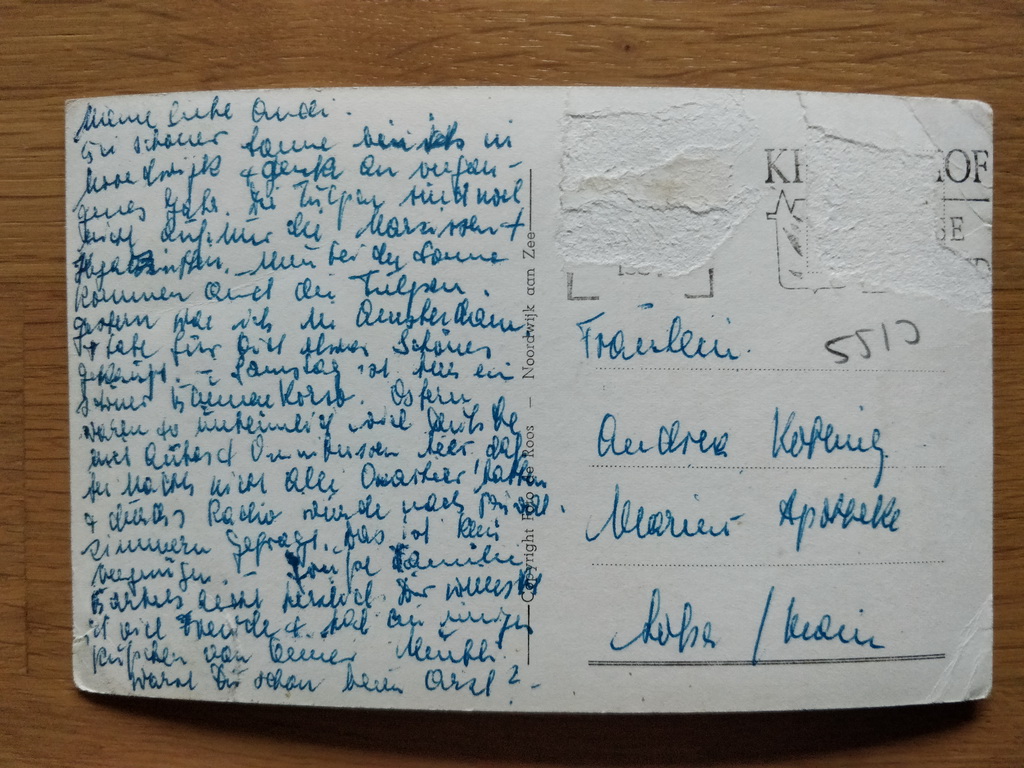 Meine liebe Andi.
Bei schöner Sonne bin ich in
Noordwijk + denke an vergan-
genes Jahr. Die Tulpen sind noch
nicht auf. Nur die Narzissen +
Hyazinthen. Nun bei der Sonne
kommen auch die Tulpen.
Gestern war ich in Amsterdam
+ habe für Dich etwas Schönes
gekauft. – Samstag ist hier ein
schöner Blumenkorso. Ostern
waren so unheimlich viel Deutsche
mit Autos + Omnibussen hier, daß
bei Nachts nicht alle Quartier hatten
+ durchs Radio wurde nach Privat-
zimmern gefragt. Das ist kein
vergnügen. – Familie
Bartels herzlich. Dir wünsche
ich viel Freude + ein inniges
Küßchen von Deiner Mutti.
Warst Du schon beim Arzt? –
Copyright Foto de Roos – Noordwijk aan Zee
K OF
SE
5513
Fräulein
Andrea
Marien Apotheke
/ Main